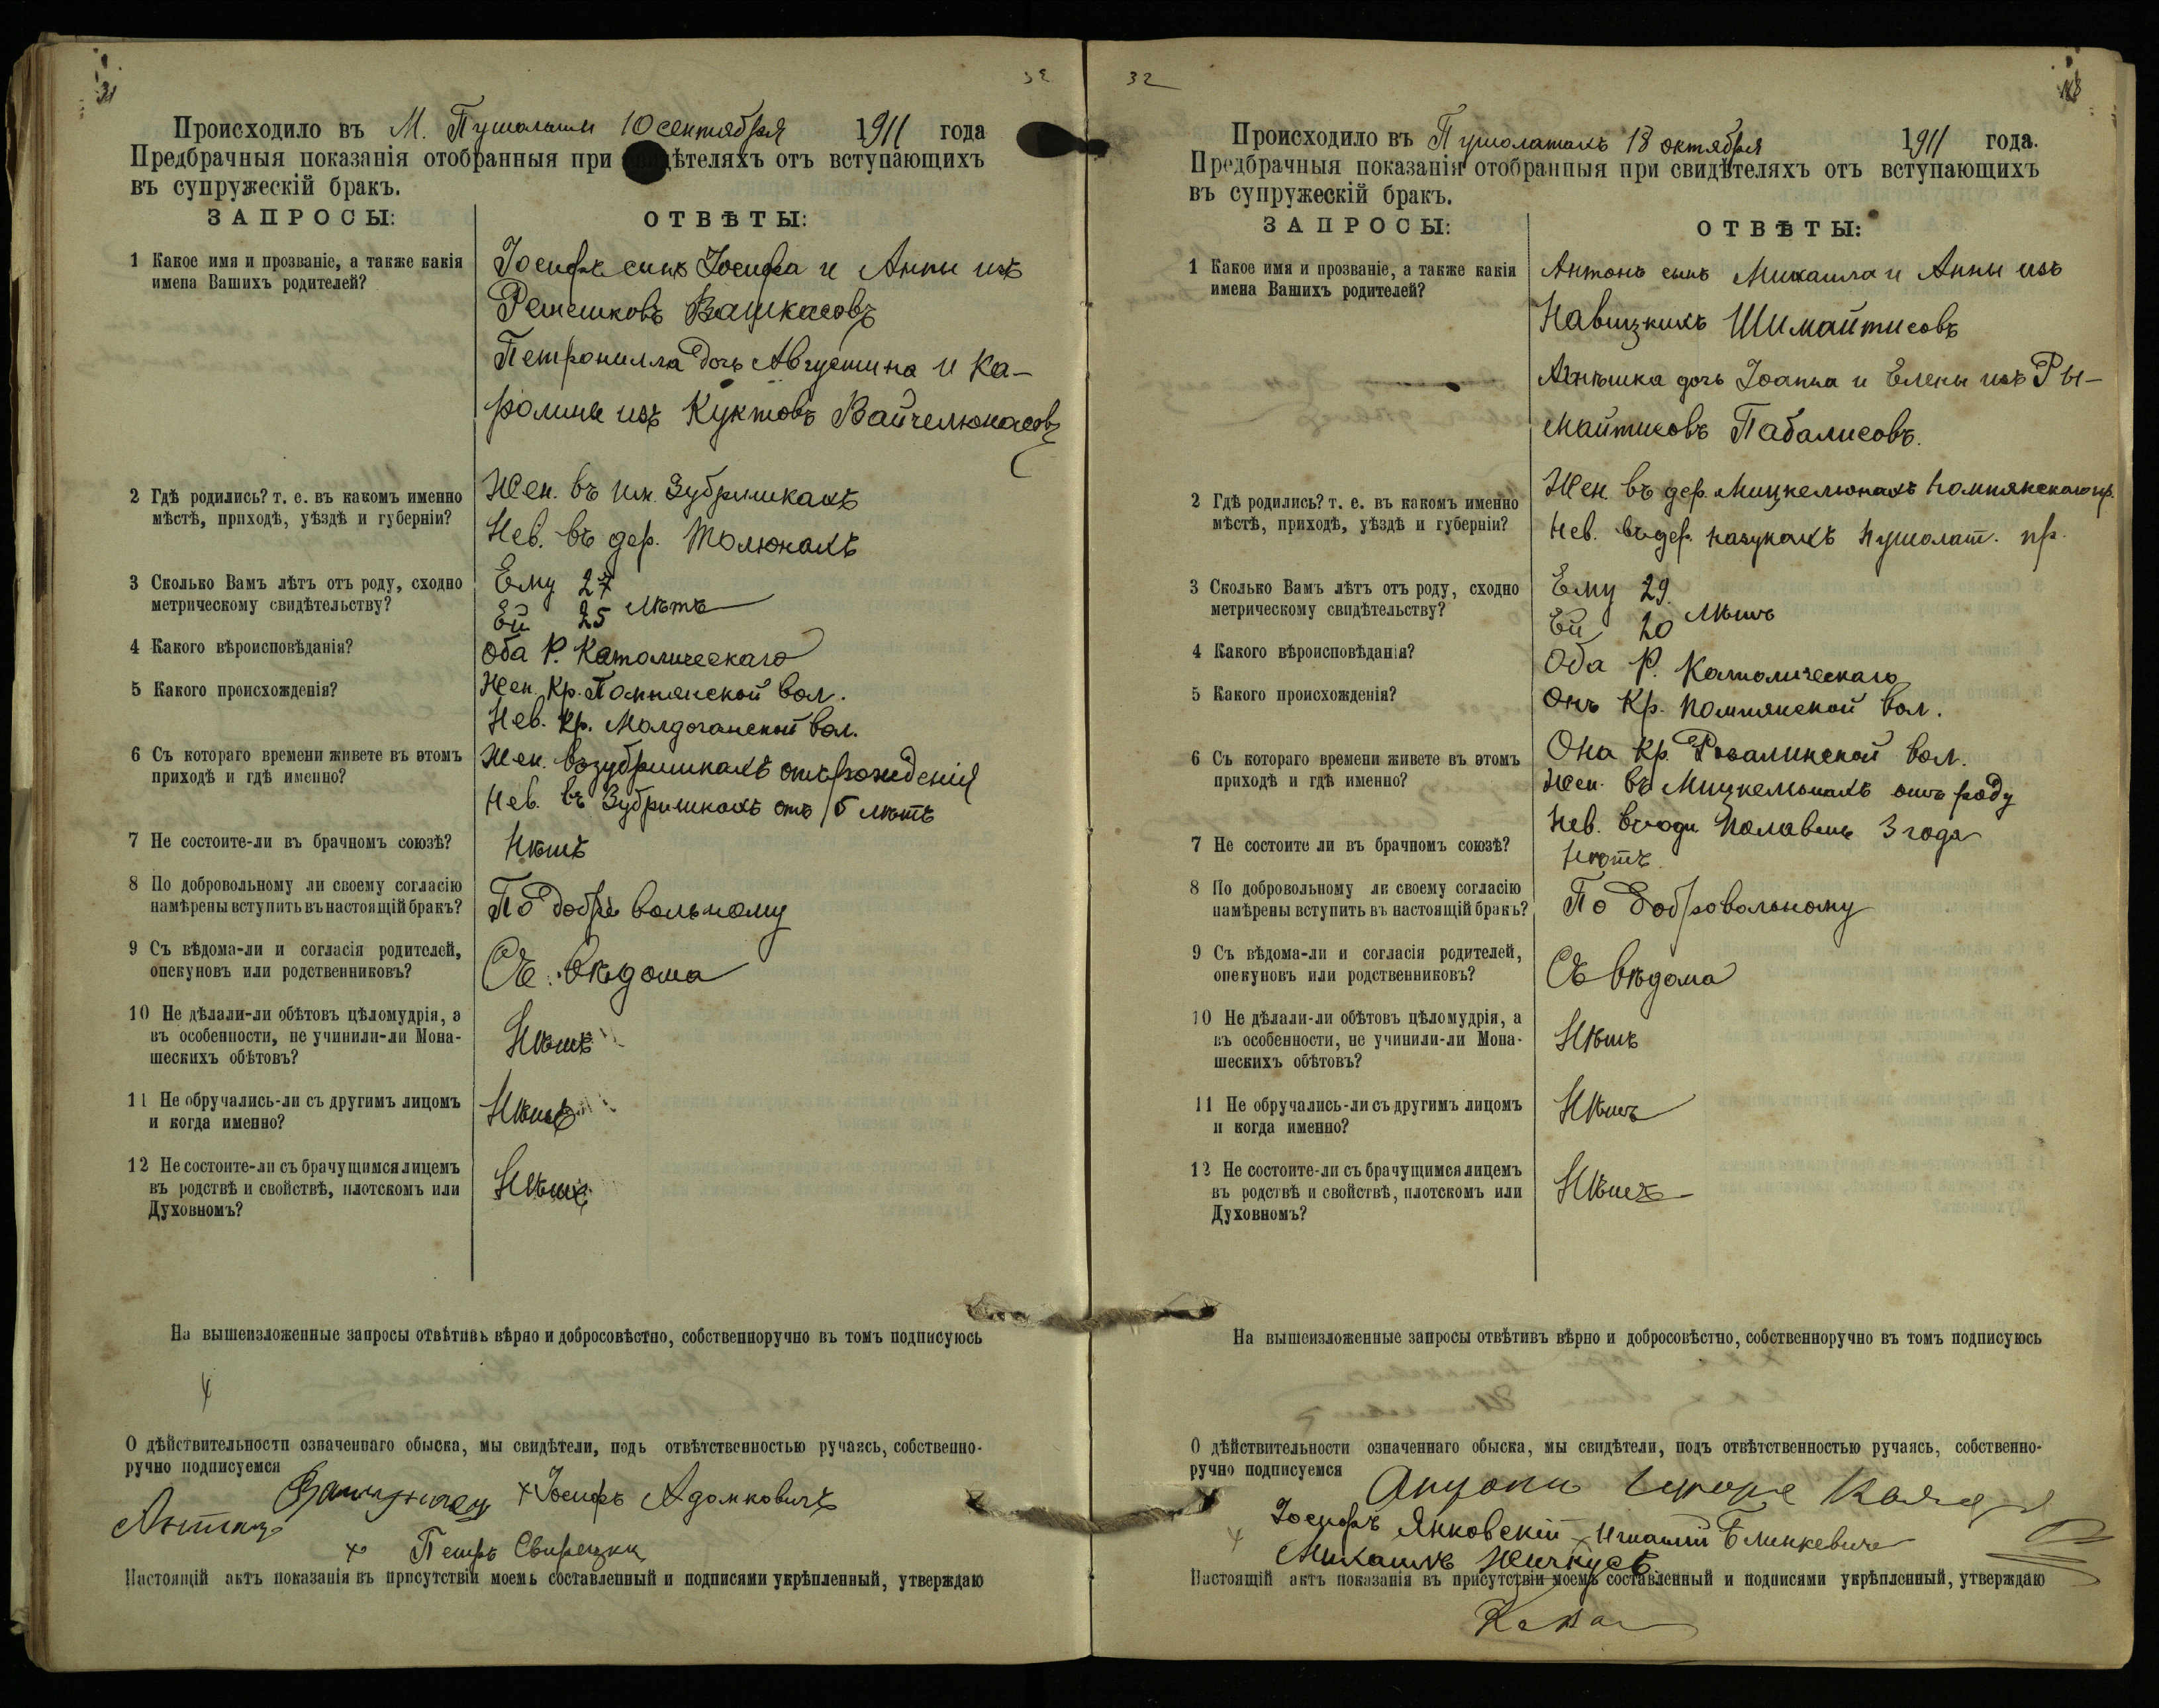 31
32
Происходило въ М. Пушолаты 10 сентября 1911 года
Предбрачныя показанія отобранныя при дѣтеляхъ отъ вступающихъ
въ супружескій бракъ.
ЗАПРОСЫ:
ОТВѢТЫ:
1 Какое имя и прозваніе, а также какія
имена Вашихъ родителей?
Іосифъ сынъ Іосифа и Анны изъ
Петронилла дочь Августина и Ка-
ролины изъ Куктовъ Вайчелюнасовъ
2 Гдѣ родились? т. е. въ какомъ именно
мѣстѣ, приходѣ, уѣздѣ и губерніи?
Жен. въ им. Зубришкахъ
Нев. въ дер. Толюнахъ
3 Сколько Вамъ лѣтъ отъ роду, сходно
метрическому свидѣтельству?
Ему 27
Ей 25 лѣтъ
4 Какого вѣроисповѣданія?
Оба Р. Католическаго
5 Какого происхожденія?
Жен. Кр. Помпянской вол.
Нев. Кр. вол.
6 Съ котораго времени живете въ этомъ
приходѣ и гдѣ именно?
Жен. въ Зубришкахъ отъ рожденія
Нев. въ Зубришкахъ отъ лѣтъ
7 Не состоите-ли въ брачномъ союзѣ?
Нѣтъ
8 По добровольному ли своему согласію
намѣрены вступить въ настоящій бракъ?
По добровольному
9 Съ вѣдома-ли и согласія родителей,
опекуновъ или родственниковъ?
Съ вѣдома
10 Не дѣлали-ли обѣтовъ цѣломудрія, а
въ особенности, не учинили-ли Мона-
шескихъ обѣтовъ?
Нѣтъ
11 Не обручались-ли съ другимъ лицомъ
и когда именно?
Нѣтъ
12 Не состоите-ли съ брачущимся лицемъ
въ родствѣ и свойствѣ, плотскомъ или
Духовномъ?
Нѣтъ
На вышеизложенные запросы отвѣтивъ вѣрно и добросовѣстно, собственноручно въ томъ подписуюсь
О дѣйствительности означеннаго обыска, мы свидѣтели, подъ отвѣтственностью ручаясь, собственно-
ручно подписуемся
× Іосифъ Адомковичъ
× Петръ Свирецки
Настоящій актъ показанія въ присутствіи моемъ составленный и подписями укрѣпленный, утверждаю
32
Происходило въ Пушолатахъ 18 октября 1911 года.
Предбрачныя показанія отобранныя при свидѣтеляхъ отъ вступающихъ
въ супружескій бракъ.
ЗАПРОСЫ:
ОТВѢТЫ:
1 Какое имя и прозваніе, а также какія
имена Вашихъ родителей?
Антонъ сынъ Михаила и Анны изъ
Навицкихъ Шимайтисовъ
Агнѣшка дочь Іоанна и Елены изъ Ры-
майтисовъ Пабалисовъ.
2 Гдѣ родились? т. е. въ какомъ именно
мѣстѣ, приходѣ, уѣздѣ и губерніи?
Жен. въ дер. Мицкелюнахъ Помпянскаго пр.
Нев. въ дер. Пушолат. пр.
3 Сколько Вамъ лѣтъ отъ роду, сходно
метрическому свидѣтельству?
Ему 29
Ей 20 лѣтъ
4 Какого вѣроисповѣданія?
Оба Р. Католическаго
5 Какого происхожденія?
Онъ Кр. Помпянской вол.
Она Кр. Розалинской вол.
6 Съ котораго времени живете въ этомъ
приходѣ и гдѣ именно?
Жен. въ Мицкелюнахъ отъ роду
Нев. 3 года
7 Не состоите ли въ брачномъ союзѣ?
Нѣтъ
8 По добровольному ли своему согласію
намѣрены вступить въ настоящій бракъ?
По добровольному
9 Съ вѣдома-ли и согласія родителей,
опекуновъ или родственниковъ?
Съ вѣдома
10 Не дѣлали-ли обѣтовъ цѣломудрія, а
въ особенности, не учинили-ли Мона-
шескихъ обѣтовъ?
Нѣтъ
11 Не обручались-ли съ другимъ лицомъ
и когда именно?
Нѣтъ
12 Не состоите-ли съ брачущимся лицемъ
въ родствѣ и свойствѣ, плотскомъ или
Духовномъ?
Нѣтъ
На вышеизложенные запросы отвѣтивъ вѣрно и добросовѣстно, собственноручно въ томъ подписуюсь
О дѣйствительности означеннаго обыска, мы свидѣтели, подъ отвѣтственностью ручаясь, собственно-
ручно подписуемся
Іосифъ Янковскій × Игнатій Блинкевичъ
Михаилъ
Настоящій актъ показанія въ присутствіи моемъ составленный и подписями укрѣпленный, утверждаю